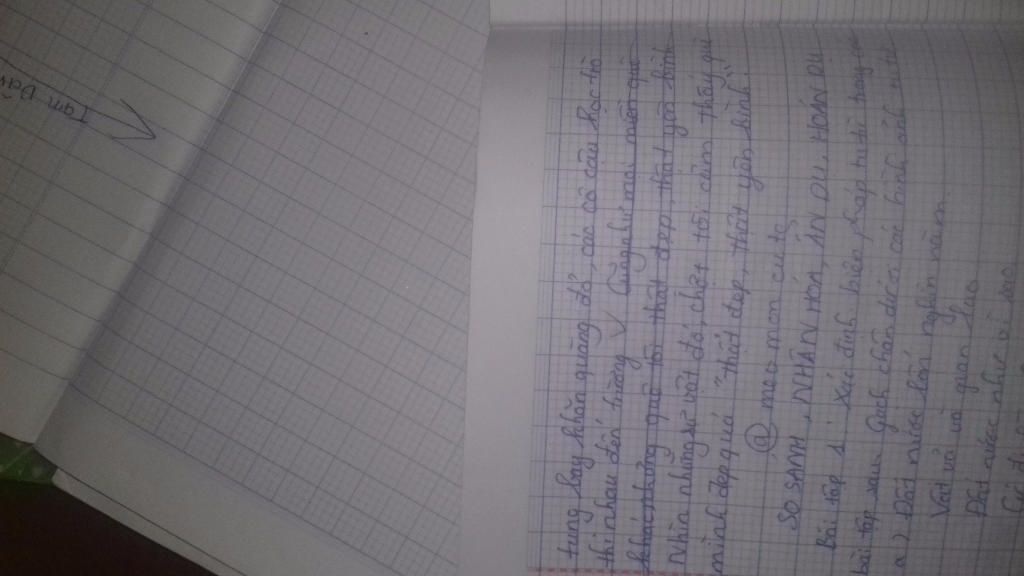 tung bay khăn quàng đỏ, các cô cậu học trò
thi nhau đến trường ∨ Cũng như mọi miền quê
khác, nhưng quê tôi thật đẹp, thật yên bình
Nhìn những sự vật đó, chợt tôi cảm thấy quê
mình đẹp quá "thật đẹp, thật yên bình"
@ meo mon cu to
SO SÁNH, NHÂN HOÁ, ẨN DỤ, HOÁN DỤ
Bài tập 1: Xác định biện pháp tu từ trong
bài tập sau. Gạch chân dưới các hình ảnh tu từ
a) Đất nước bốn nghìn năm
Vất vả và gian lao
Đất nước như vì sao
Tam Đảo